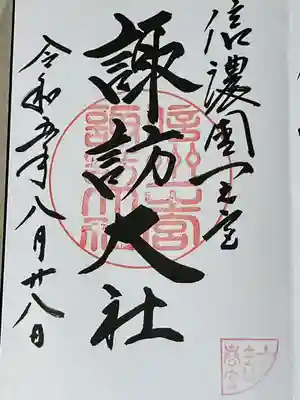 信濃國一之宮
諏訪大社
令和五年八月廿八日